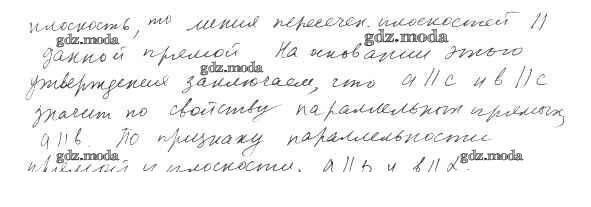 плоскость, то линия пересечен. плоскостей ||
gdz.moda gdz.moda
данной прямой На основании этого
gdz.moda
утверждения заключаем, что a || c и b || c
значит по свойству параллельных прямых,
gdz.moda
a || b. По признаку параллельности
прямой и плоскости. a || β и b || α.
gdz.moda gdz.moda